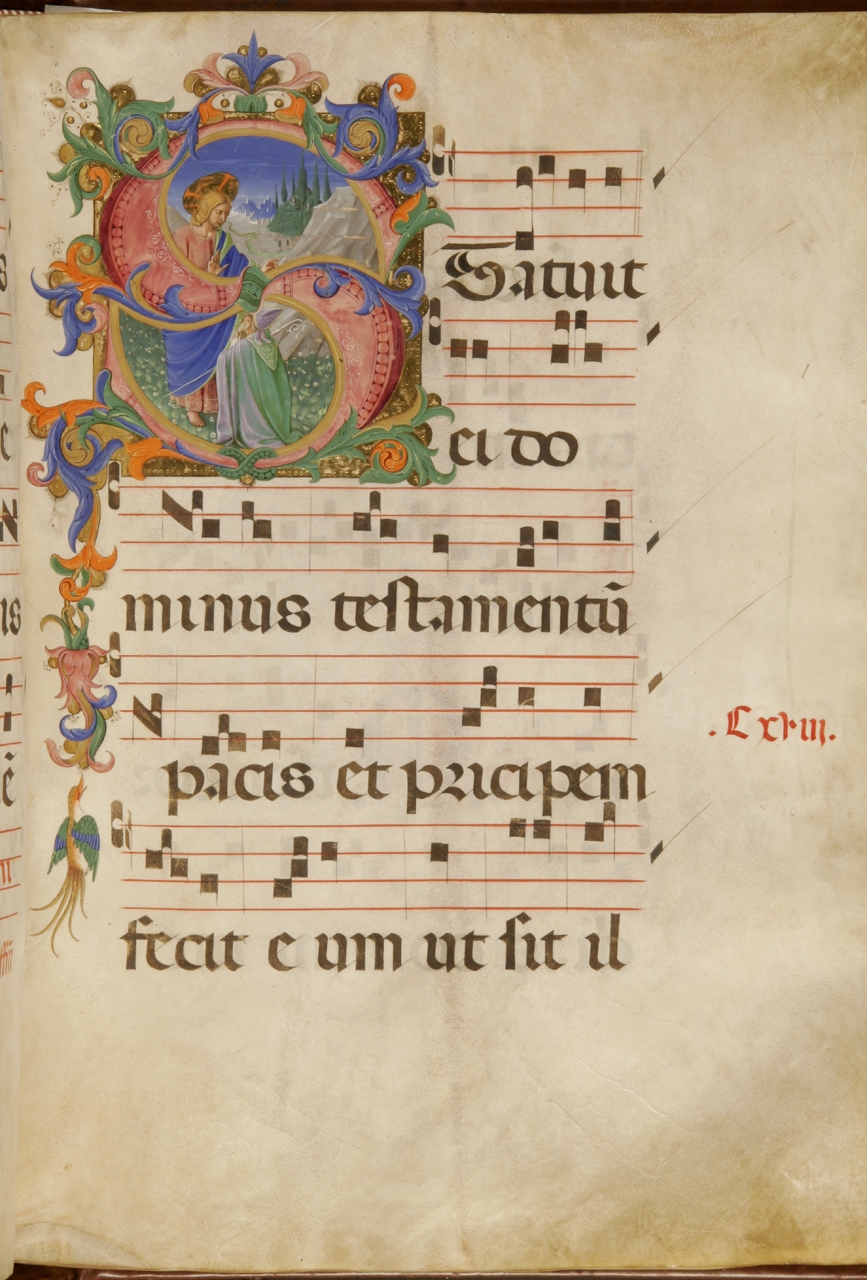 Statuit
ei do
minus testamentū
pacis et pricipem
fecit e um ut sit il
.Cxviii.